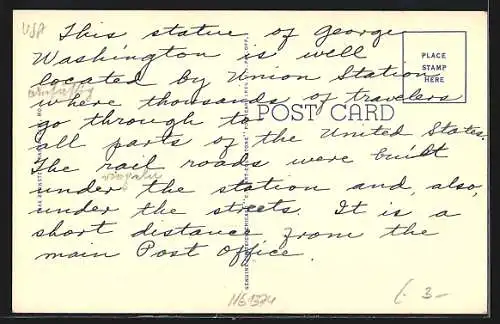 USA
This statue of George
Washington is well
located by Union Station
where thousands of travelers
go through to
all parts of the United States.
The rail roads were built
under the station and, also,
under the streets. It is a
short distance from the
main Post Office.
PLACE
STAMP
HERE
POST CARD
1161324
3-